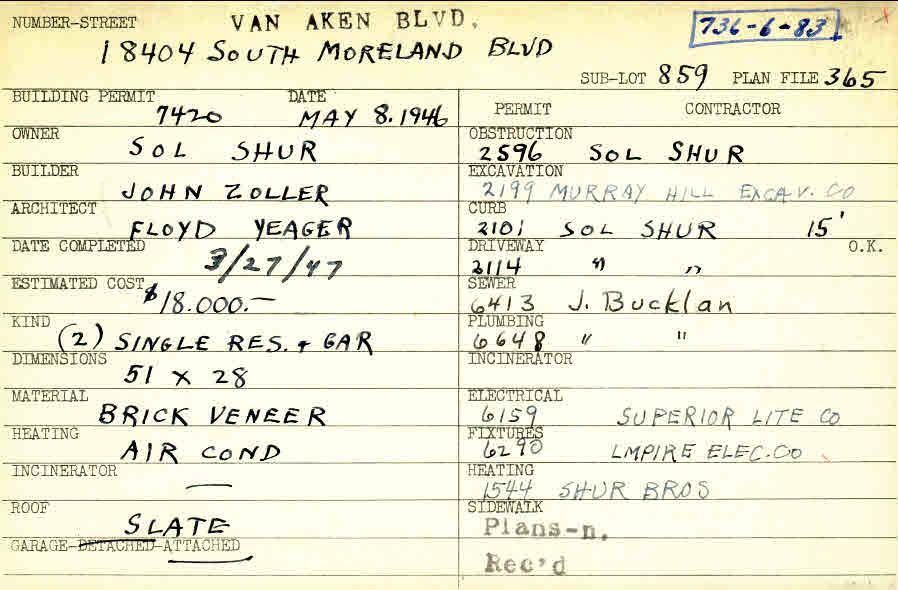 NUMBER-STREET VAN AKEN BLVD. 736-6-83
18404 SOUTH MORELAND BLVD
SUB-LOT 859 PLAN FILE 365
BUILDING PERMIT DATE PERMIT CONTRACTOR
7420 MAY 8. 1946
OWNER OBSTRUCTION
SOL SHUR 2596 SOL SHUR
BUILDER EXCAVATION
JOHN ZOLLER 2199 MURRAY HILL EXCAV. CO
ARCHITECT CURB
FLOYD YEAGER 2101 SOL SHUR 15'
DATE COMPLETED DRIVEWAY O.K.
3/27/47 2114 " "
ESTIMATED COST SEWER
$18.000.— 6413 J. Bucklan
KIND PLUMBING
(2) SINGLE RES. + GAR 6648 " "
DIMENSIONS INCINERATOR
51 X 28
MATERIAL ELECTRICAL
BRICK VENEER 6159 SUPERIOR LITE CO
HEATING FIXTURES
AIR COND 6290 LMPIRE ELEC. CO
INCINERATOR HEATING
— 1544 SHUR BROS
ROOF SIDEWALK
SLATE Plans-n.
GARAGE-DETACHED-ATTACHED Rec'd